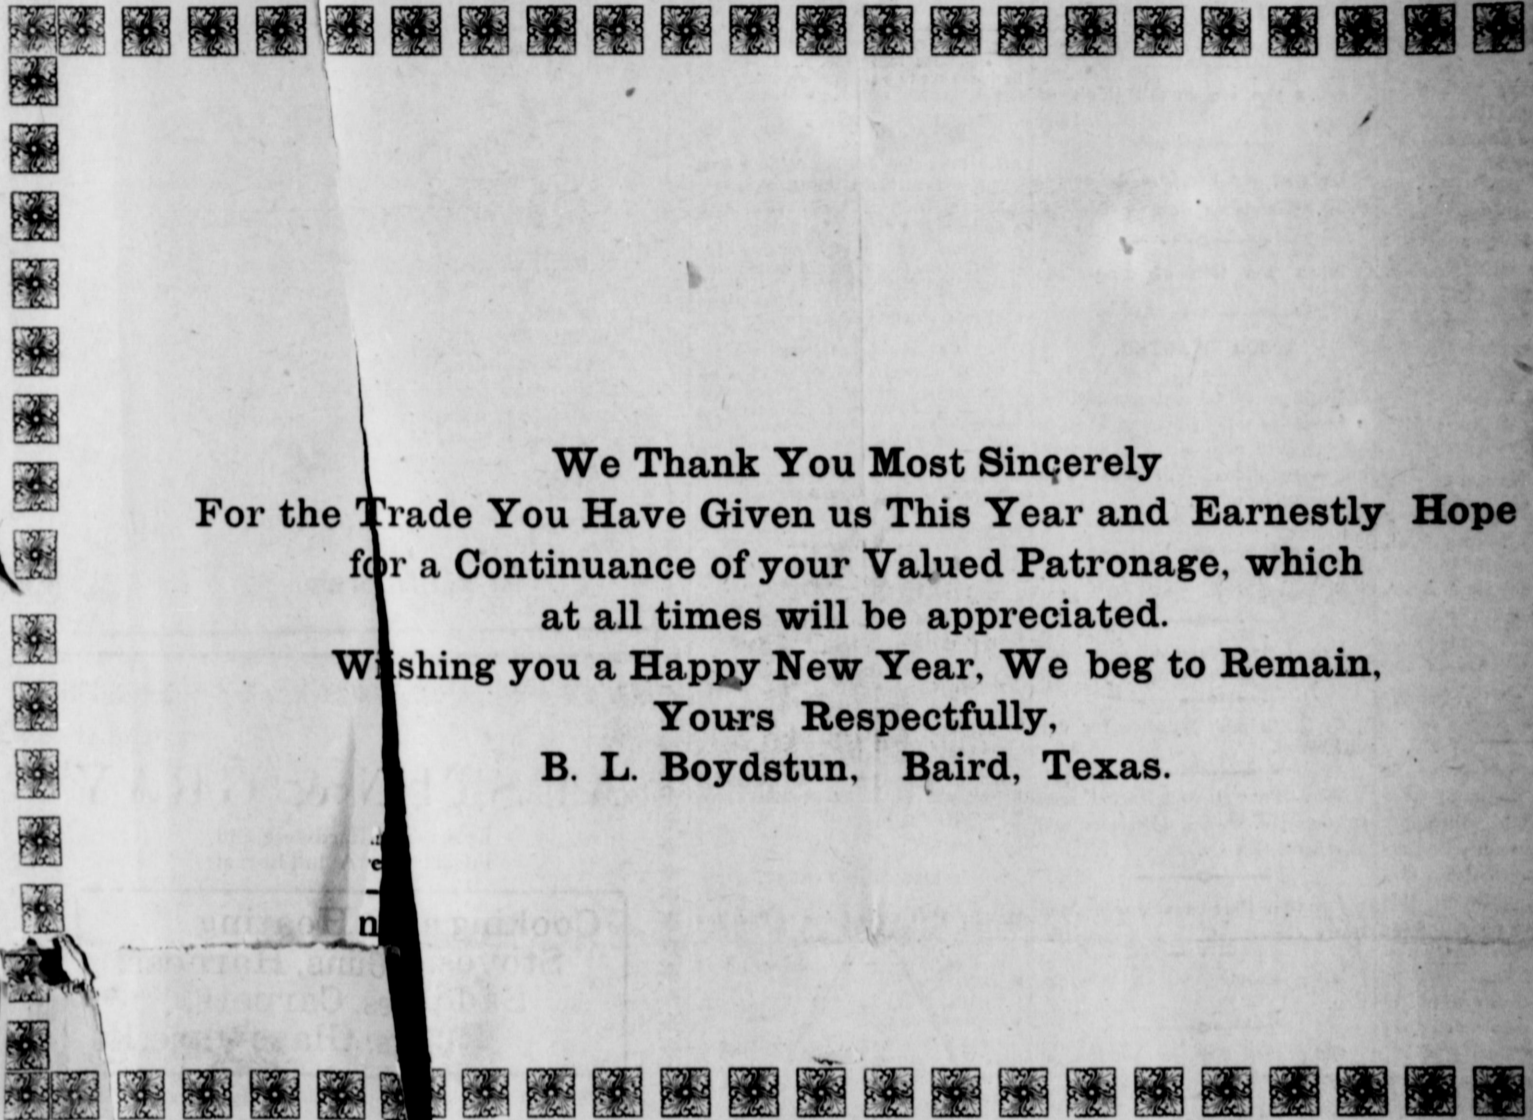 We Thank You Most Sincerely
For the Trade You Have Given us This Year and Earnestly Hope
for a Continuance of your Valued Patronage, which
at all times will be appreciated.
Wishing you a Happy New Year, We beg to Remain,
Yours Respectfully,
B. L. Boydstun, Baird, Texas.